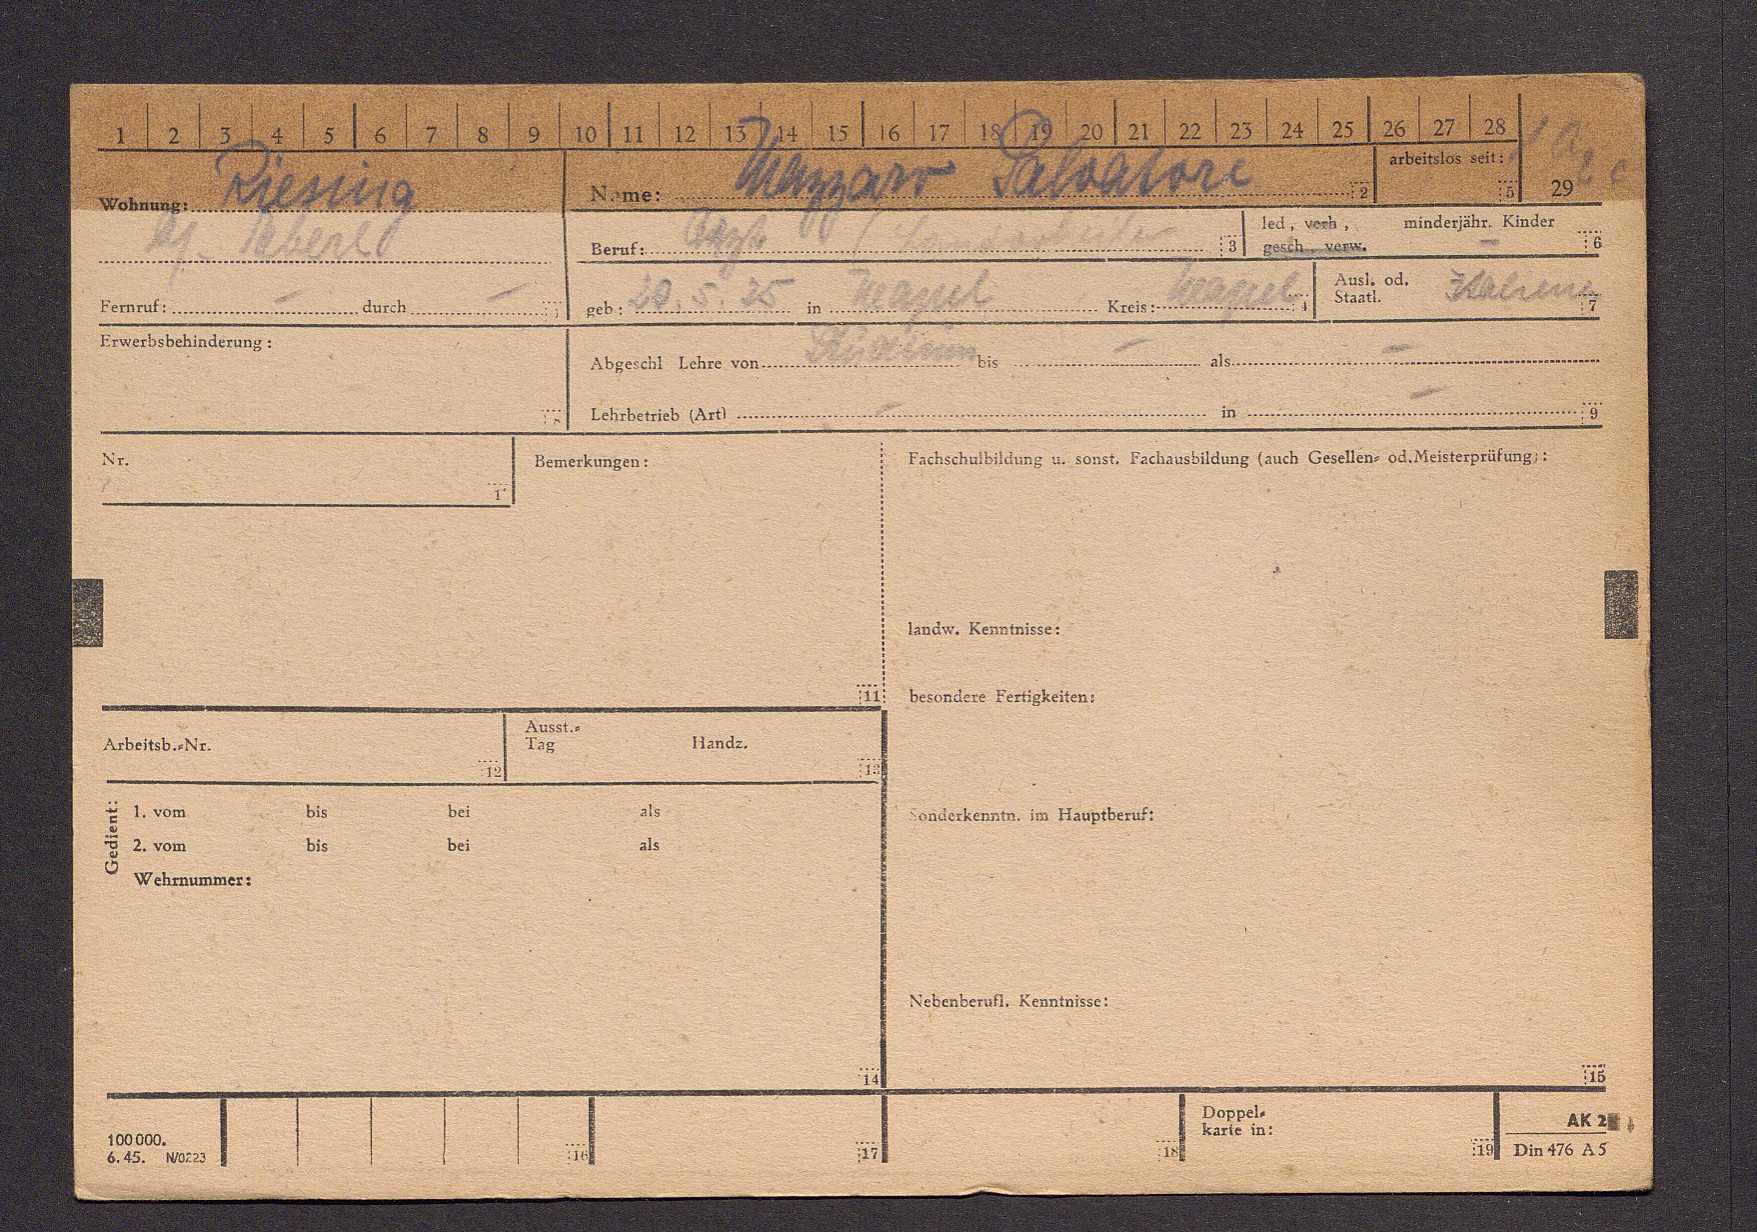 1 2 3 4 5 6 7 8 9 10 11 12 13 14 15 16 17 18 19 20 21 22 23 24 25 26 27 28
Wohnung: Riesing
Name: Mazzaro Salvatore 2
arbeitslos seit: 5
29
Beruf: Arzt / Landarbeiter 3
led, verh, minderjähr. Kinder –
gesch verw. 6
Fernruf: – durch –
geb: 20.5.25 in Neapel Kreis: Neapel 4
Ausl. od.
Staatl. Italiener 7
Erwerbsbehinderung:
8
Abgeschl Lehre von Studium bis – als –
Lehrbetrieb (Art) – in – 9
Nr.
1
Bemerkungen:
11
Fachschulbildung u. sonst. Fachausbildung (auch Gesellen= od.Meisterprüfung):
landw. Kenntnisse:
besondere Fertigkeiten:
Arbeitsb.=Nr. 12
Ausst.=
Tag Handz. 13
Gedient:
1. vom bis bei als
2. vom bis bei als
Wehrnummer:
14
Sonderkenntn. im Hauptberuf:
Nebenberufl. Kenntnisse:
15
100000.
6.45. N/0223
16
17
18
Doppel=
karte in: 19
AK 2
Din 476 A5